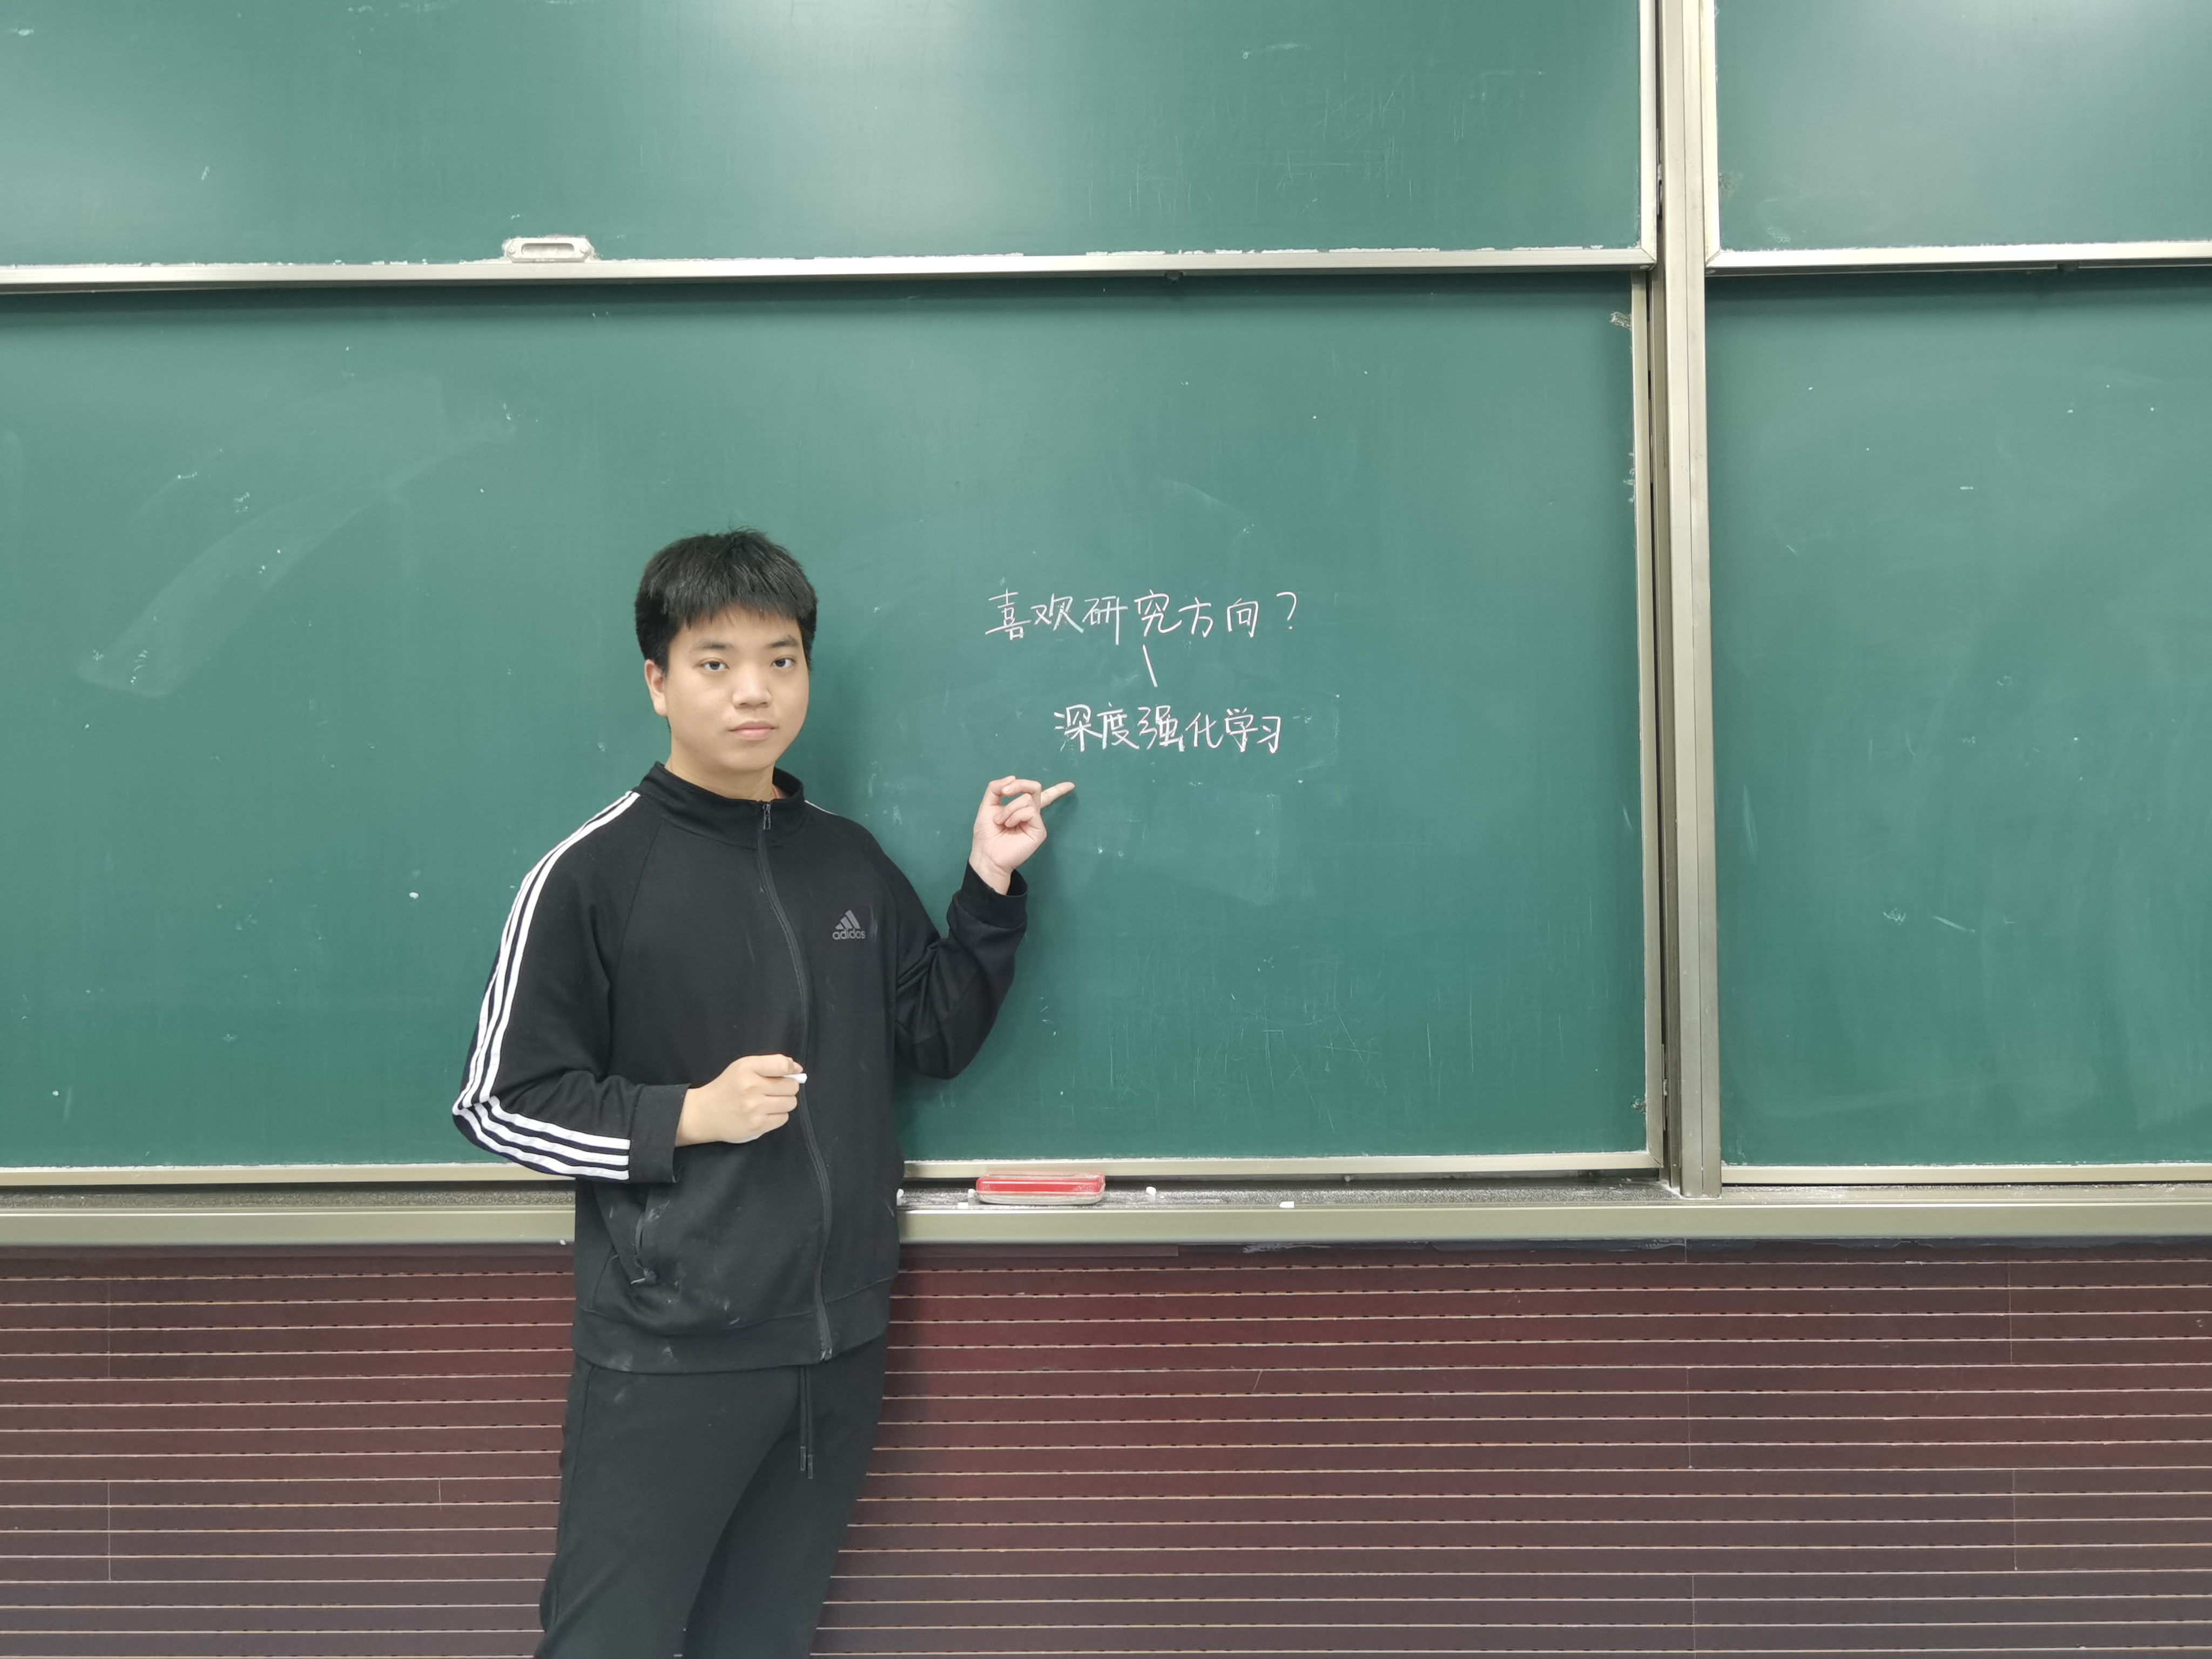 喜欢研究方向?
深度强化学习
adidas